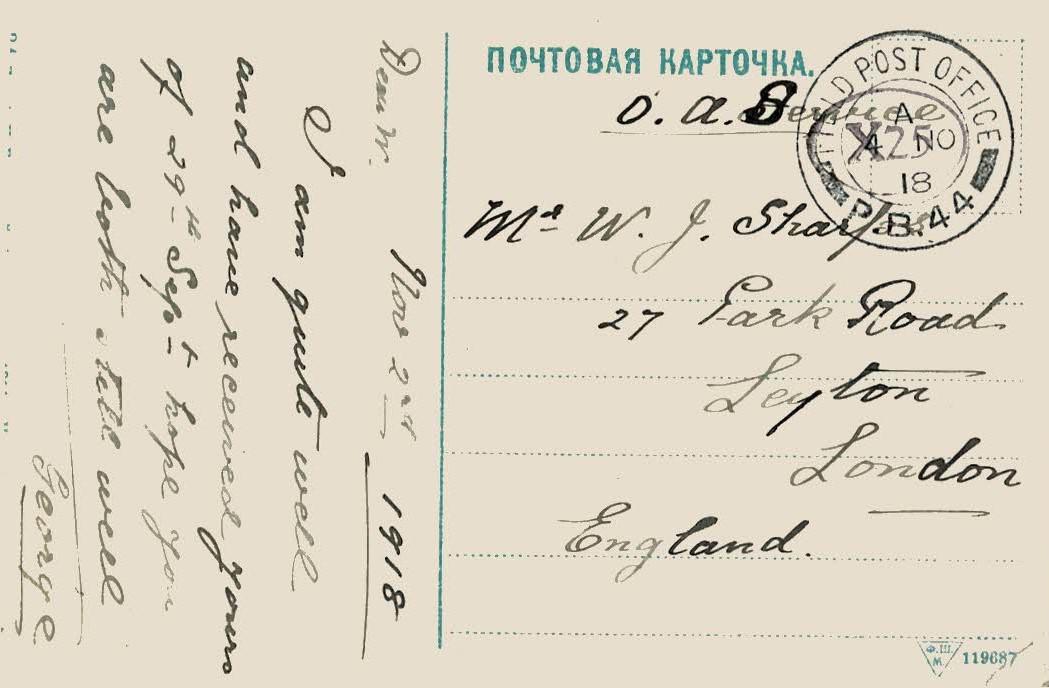 ПОЧТОВАЯ КАРТОЧКА.
O. A. Service
FIELD POST OFFICE
A
X25
4 NO
18
P.B.44
Mr W. J. Sharpe
27 Park Road
Leyton
London
England.
Ф.Ш.
М.
119687
Dear W. Nov 2nd 1918
I am quite well
and have received yours
of 29th Sept hope you
are both still well
George